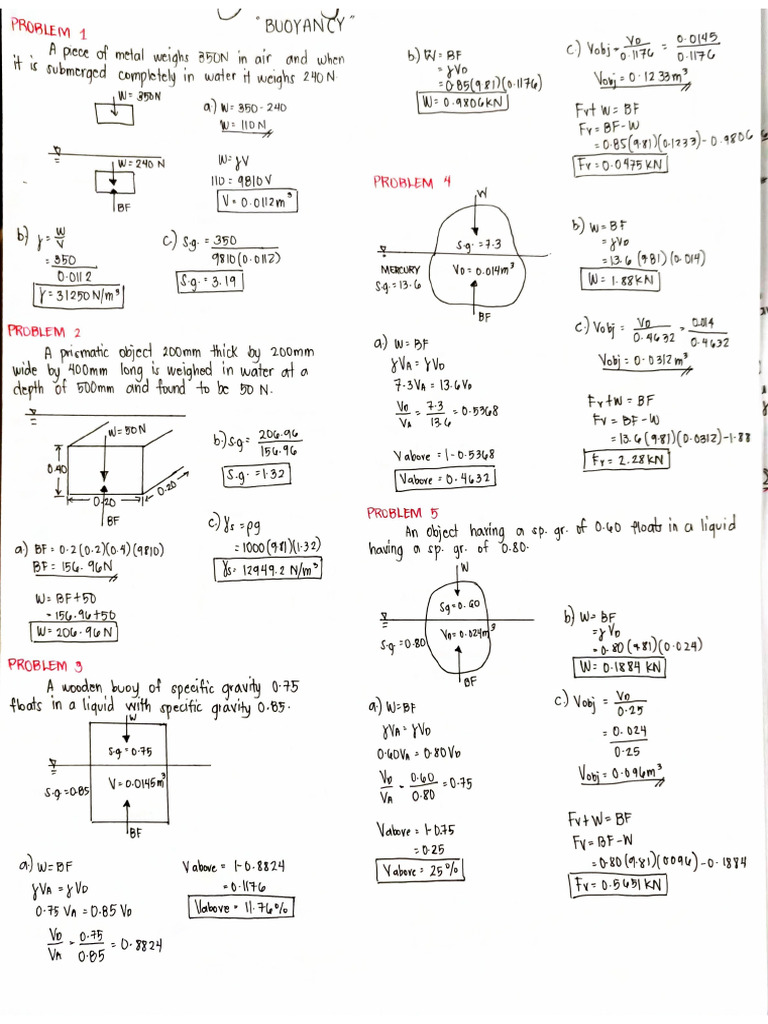 "BUOYANCY"
PROBLEM 1
A piece of metal weighs 350N in air and when
it is submerged completely in water it weighs 240 N.
W = 350N
W = 240 N
BF
a) W = 350 - 240
W = 110 N
W = γV
110 = 9810 V
V = 0.0112 m³
b) γ = W/V
= 350/0.0112
γ = 31250 N/m³
c) S.g. = 350/9810(0.0112)
S.g. = 3.19
PROBLEM 2
A prismatic object 200mm thick by 200mm
wide by 400mm long is weighed in water at a
depth of 500mm and found to be 50 N.
W = 50N
0.40
0.20
0.20
BF
a) BF = 0.2(0.2)(0.4)(9810)
BF = 156.96N
W = BF+50
= 156.96+50
W = 206.96N
b) S.g = 206.96/156.96
S.g. = 1.32
c) γs = ρg
= 1000(9.81)(1.32)
γs = 12949.2 N/m³
PROBLEM 3
A wooden buoy of specific gravity 0.75
floats in a liquid with specific gravity 0.85.
W
S.g = 0.75
S.g = 0.85
V = 0.0145m³
BF
a) W = BF
γVA = γVD
0.75 VA = 0.85 VD
VD/VA = 0.75/0.85 = 0.8824
Vabove = 1 - 0.8824
= 0.1176
Vabove = 11.76%
b) W = BF
= γVD
= 0.85(9.81)(0.1176)
W = 0.9806KN
c) Vobj = VD/0.1176 = 0.0145/0.1176
Vobj = 0.1233m³
Fv + W = BF
Fv = BF - W
= 0.85(9.81)(0.1233) - 0.9806
Fv = 0.0475 KN
PROBLEM 4
W
S.g. = 7.3
MERCURY
S.g = 13.6
VD = 0.014m³
BF
a) W = BF
γVA = γVD
7.3VA = 13.6VD
VD/VA = 7.3/13.6 = 0.5368
Vabove = 1 - 0.5368
Vabove = 0.4632
b) W = BF
= γVD
= 13.6 (9.81)(0.014)
W = 1.88KN
c) Vobj = VD/0.4632 = 0.014/0.4632
Vobj = 0.0312m³
Fv + W = BF
Fv = BF - W
= 13.6(9.81)(0.0312) - 1.88
Fv = 2.28KN
PROBLEM 5
An object having a sp. gr. of 0.60 floats in a liquid
having a sp. gr. of 0.80.
W
Sg = 0.60
S.g = 0.80
VD = 0.024m³
BF
a) W = BF
γVA = γVD
0.60VA = 0.80VD
VD/VA = 0.60/0.80 = 0.75
Vabove = 1 - 0.75
= 0.25
Vabove = 25%
b) W = BF
= γVD
= 0.80(9.81)(0.024)
W = 0.1884 KN
c) Vobj = VD/0.25
= 0.024/0.25
Vobj = 0.096m³
Fv + W = BF
Fv = BF - W
= 0.80(9.81)(0.096) - 0.1884
Fv = 0.5651 KN